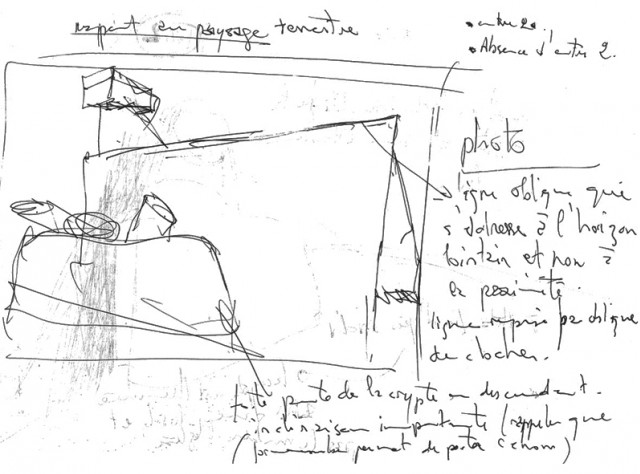 rapport au paysage terrestre
• entre 2.
• Absence d'entre 2.
photo
ligne oblique qui
s'adresse à l'horizon
lointain et non à
la proximité.
ligne reprise par oblique
de clocher.
porte de la crypte en descendant.
inclinaison importante (rappeler que
permet de porter